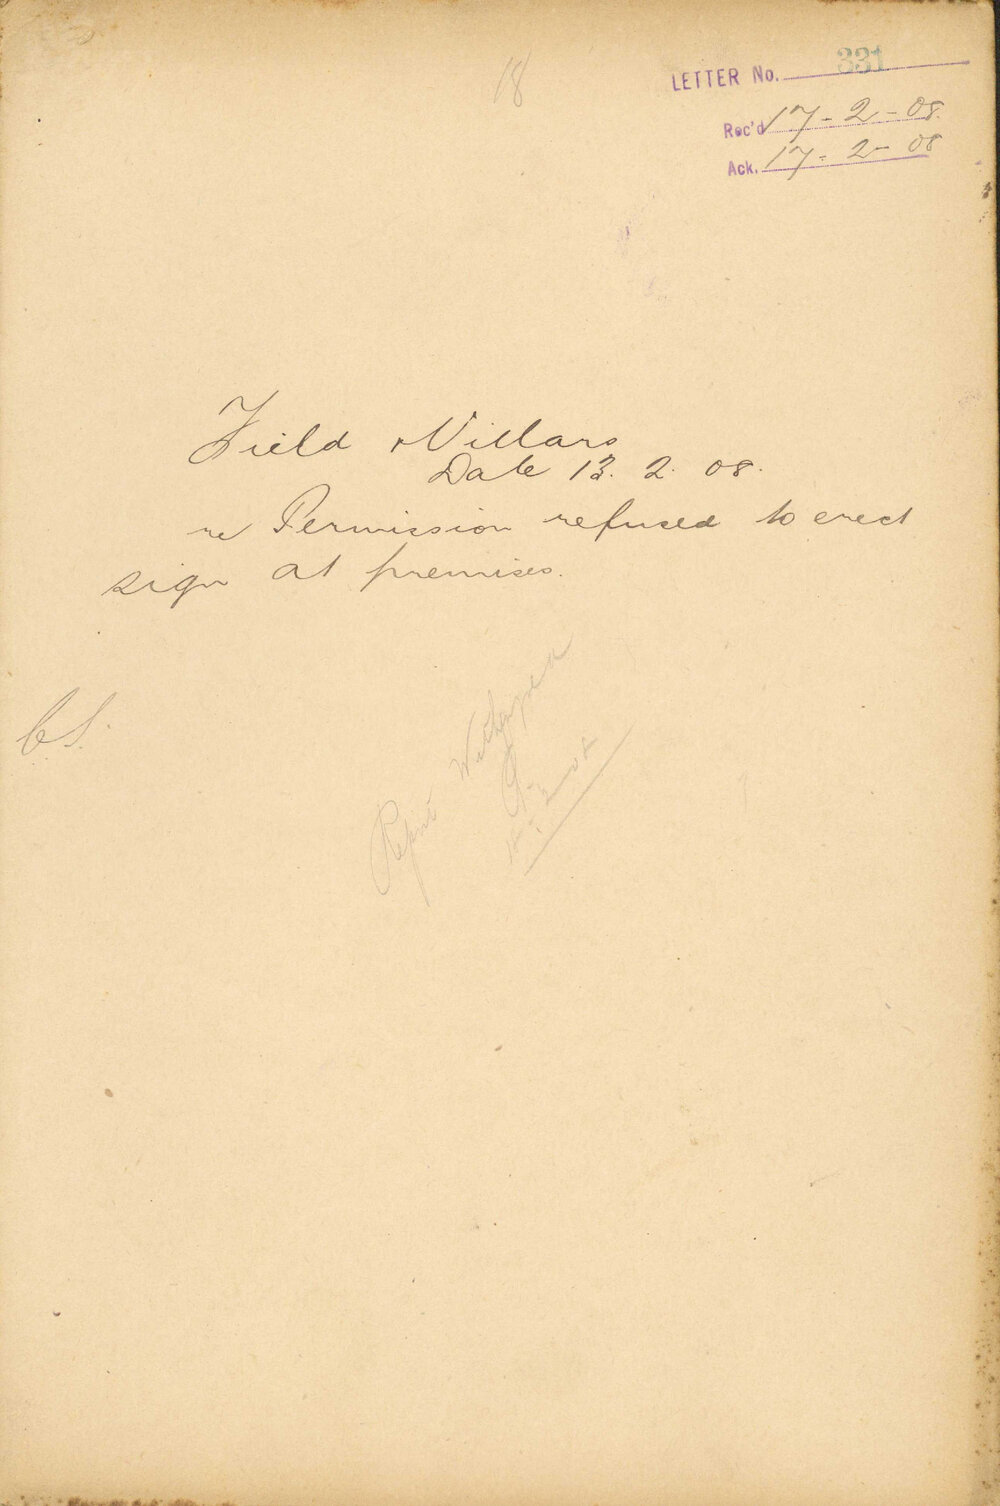 18
LETTER No. 331
Rec'd 17-2-08.
Ack. 17-2-08
Field Villars
Date 13. 2. 08.
re Permission refused to erect
sign at premises.
CS.